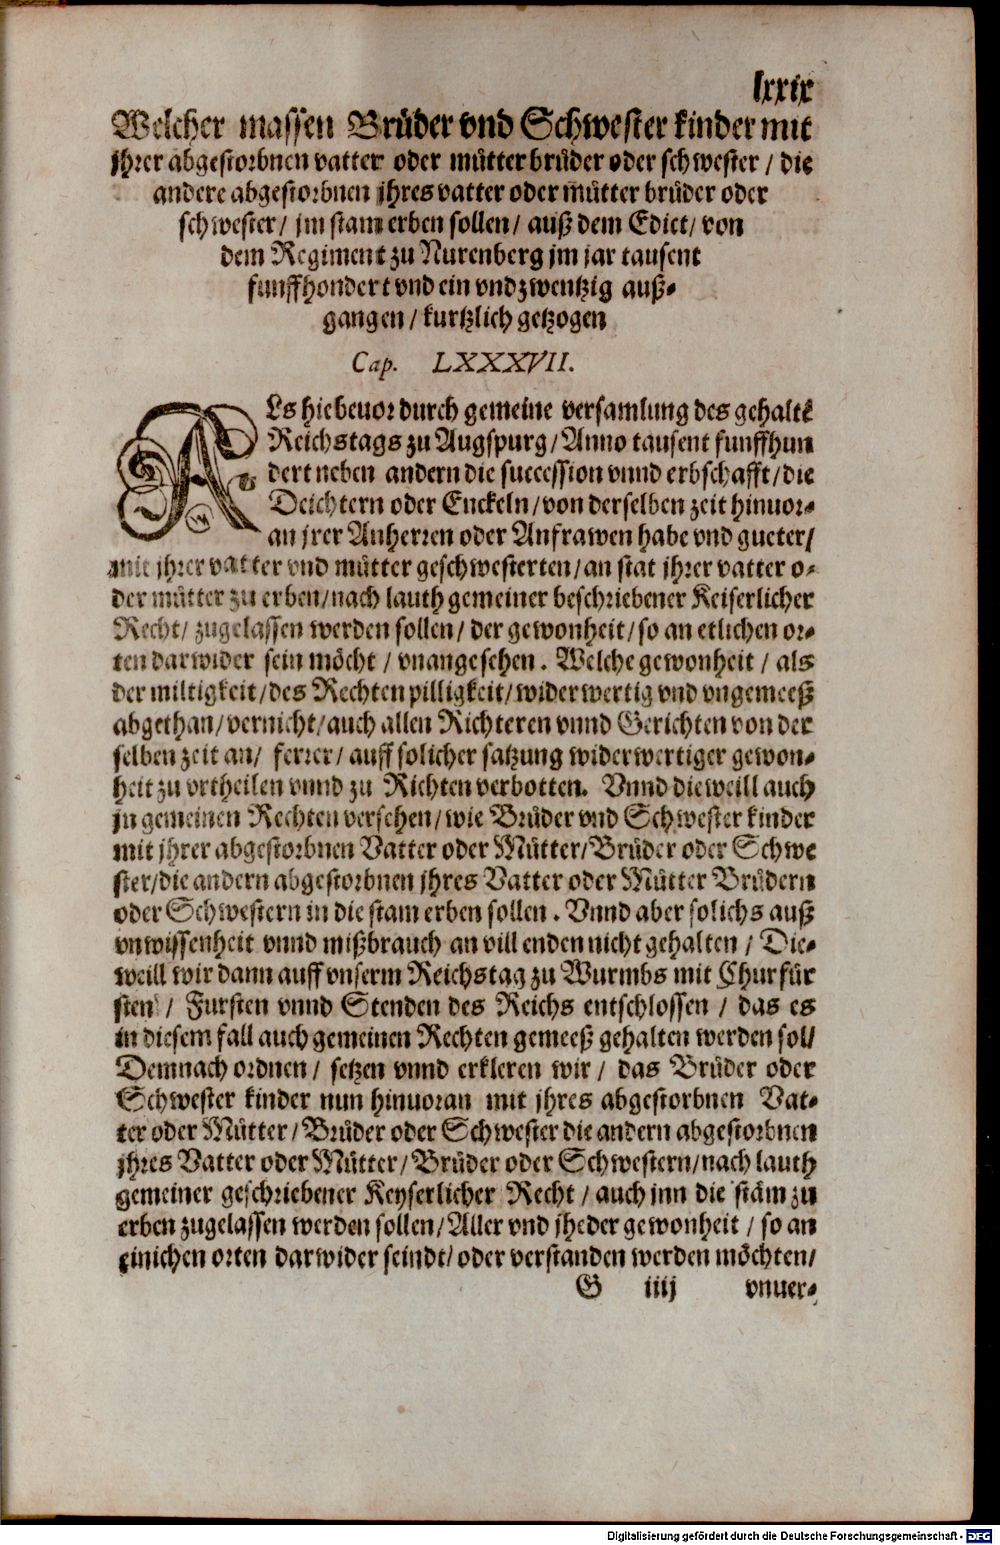 lxxix
Welcher massen Brüder vnd Schwester kinder mit
jhrer abgestorbnen vatter oder mütter brüder oder schwester / die
andere abgestorbnen jhres vatter oder mütter brüder oder
schwester / jm stam erben sollen / auß dem Edict / von
dem Regiment zu Nurenberg jm jar tausent
funffhondert vnd ein vnd zwentzig auß-
gangen / kurtzlich getzogen
Cap. LXXXVII.
ALs hiebeuor durch gemeine versamlung des gehaltē
Reichstags zu Augspurg / Anno tausent funffhun
dert neben andern die succession vnnd erbschafft / die
Deichtern oder Enckeln / von derselben zeit hinuor-
an jrer Anherren oder Anfrawen habe vnd gueter /
mit jhrer vatter vnd mütter geschwesterten / an stat jhrer vatter o-
der mütter zu erben / nach lauth gemeiner beschriebener Keiserlicher
Recht / zugelassen werden sollen / der gewonheit / so an etlichen or-
ten darwider sein möcht / vnangesehen . Welche gewonheit / als
der miltigkeit / des Rechten pilligkeit / widerwertig vnd vngemeeß
abgethan / vernicht / auch allen Richteren vnnd Gerichten von der
selben zeit an / ferrer / auff solicher satzung widerwertiger gewon-
heit zu vrtheilen vnnd zu Richten verbotten. Vnnd dieweill auch
jn gemeinen Rechten versehen / wie Brüder vnd Schwester kinder
mit jhrer abgestorbnen Vatter oder Mütter / Brüder oder Schwe
ster / die andern abgestorbnen jhres Vatter oder Mütter Brüdern
oder Schwestern in die stam erben sollen . Vnnd aber solichs auß
vnwissenheit vnnd mißbrauch an vill enden nicht gehalten / Die-
weill wir dann auff vnserm Reichstag zu Wurmbs mit Churfür
sten / Fursten vnnd Stenden des Reichs entschlossen / das es
in diesem fall auch gemeinen Rechten gemeeß gehalten werden sol /
Demnach ordnen / setzen vnnd erkleren wir / das Brüder oder
Schwester kinder nun hinuoran mit jhres abgestorbnen Vat-
ter oder Mütter / Brüder oder Schwester die andern abgestorbnen
jhres Vatter oder Mütter / Brüder oder Schwestern / nach lauth
gemeiner geschriebener Keyserlicher Recht / auch jnn die stäm zu
erben zugelassen werden sollen / Aller vnd jheder gewonheit / so an
einichen orten darwider seindt / oder verstanden werden möchten /
G iiij vnuer-
Digitalisierung gefördert durch die Deutsche Forschungsgemeinschaft - DFG